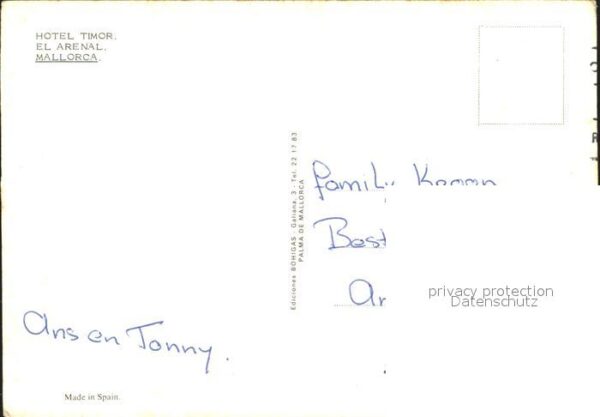 HOTEL TIMOR.
EL ARENAL.
MALLORCA.
Ediciones BOHIGAS - Galiana, 3 - Tel. 22 17 83
PALMA DE MALLORCA
Best
Ar
privacy protection
Datenschutz
Ans en Tonny.
Made in Spain.